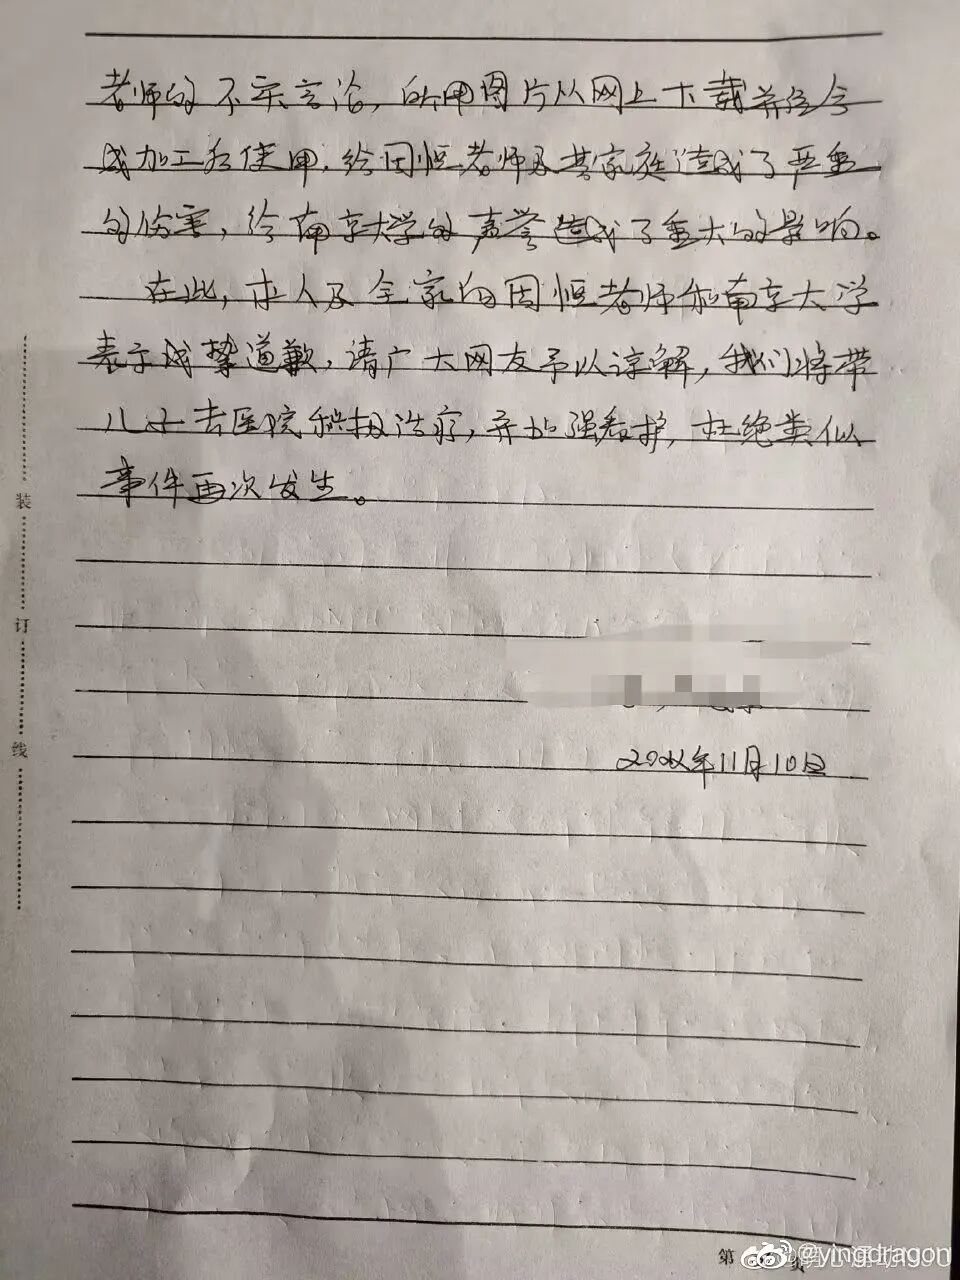 老师的不实言论，所用图片从网上下载并经合
成加工后使用，给周恒老师及其家庭造成了严重
的伤害，给南京大学的声誉造成了重大的影响。
在此，本人及全家向周恒老师和南京大学
表示诚挚道歉，请广大网友予以谅解，我们将带
儿子去医院积极治疗，并加强看护，杜绝类似
事件再次发生。
年11月10日
装
订
线
第
页
@yingdragon